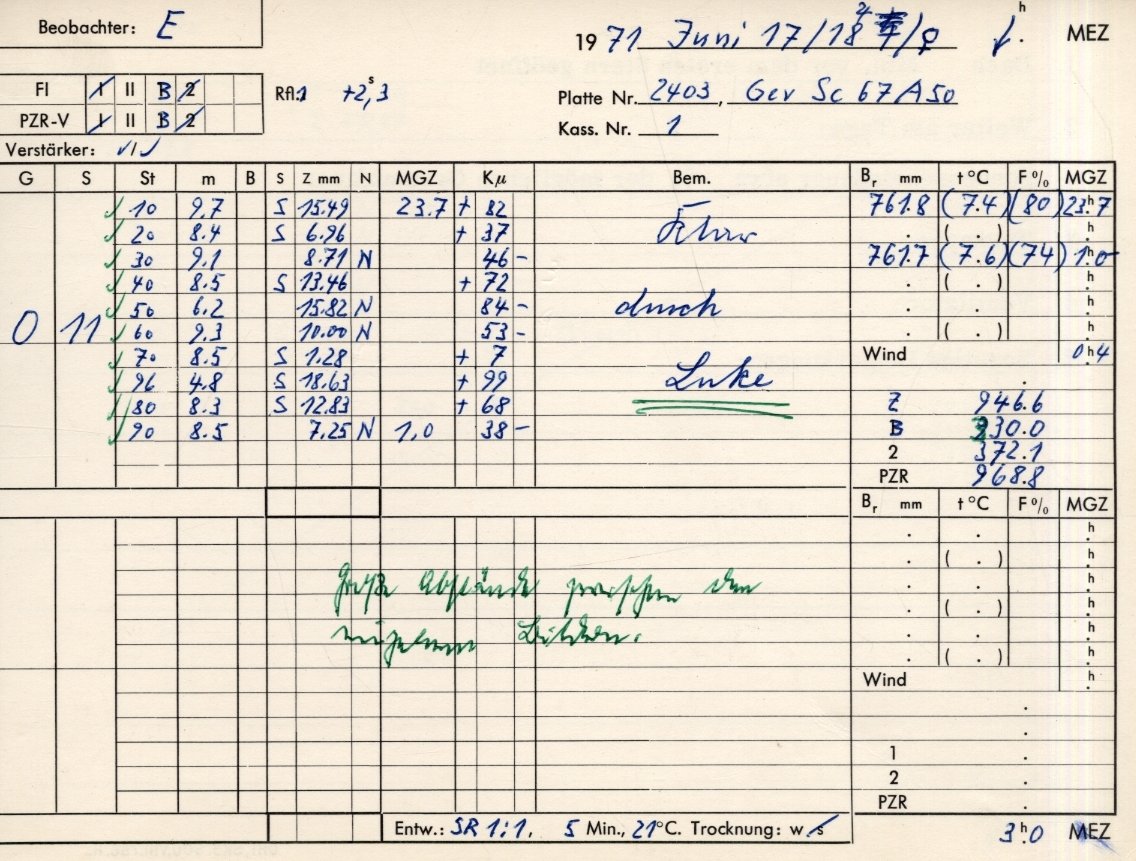 Beobachter: E
19 71 Juni 17/18 4/♀ h MEZ
FI I II B 2
RA: +2,3 s
Platte Nr. 2403, Gev Sc 67 A 50
PZR-V I II B 2
Kass. Nr. 1
Verstärker: √/√
G S St m B S Z mm N MGZ Kµ Bem. Br mm t °C F % MGZ
√ 10 9.7 S 15.49 23.7 + 82 761.8 (7.4) (80) 23h7
√ 20 8.4 S 6.96 + 37 . ( . ) h
√ 30 9.1 8.71 N 46 - 761.7 (7.6) (74) 1h0
√ 40 8.5 S 13.46 + 72 . ( . ) h
√ 50 6.2 15.82 N 84 - durch . . h
0 11 √ 60 9.3 10.00 N 53 - . ( . ) h
√ 70 8.5 S 1.28 + 7 Wind 0h4
√ 96 4.8 S 18.63 + 99 Luke .
√ 80 8.3 S 12.83 + 68 Z 946.6
√ 90 8.5 7.25 N 1,0 38 - B 330.0
2 372.1
PZR 968.8
Br mm t °C F % MGZ
. . h
. ( . ) h
. . h
Große Abstände zwischen den
. ( . ) h
einzelnen Bildern.
. . h
. ( . ) h
Wind h
.
.
1 .
2 .
PZR .
Entw.: SR 1:1, 5 Min., 21°C. Trocknung: w, s 3h.0 MEZ